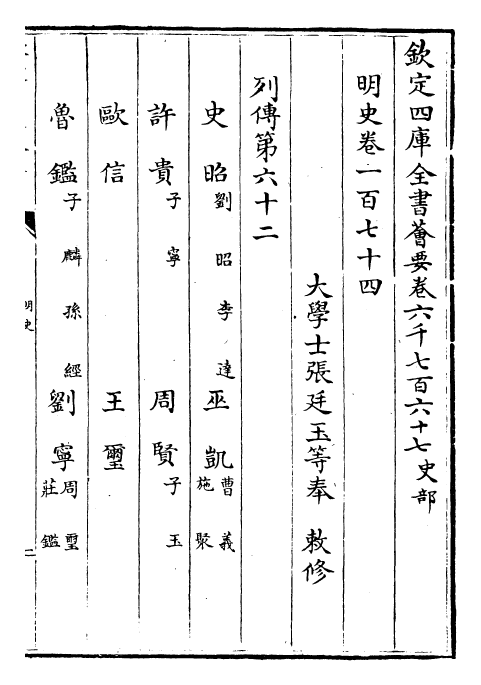 欽定四庫全書薈要卷六千七百六十七史部
明史卷一百七十四
大學士張廷玉等奉 敕修
列傳第六十二
史昭 劉昭 李達 巫凱 曹義 施聚
許貴 子寧 周賢 子玉
歐信 王璽
魯鑑 子麟 孫經 劉寧 周璽 莊鑑
明史